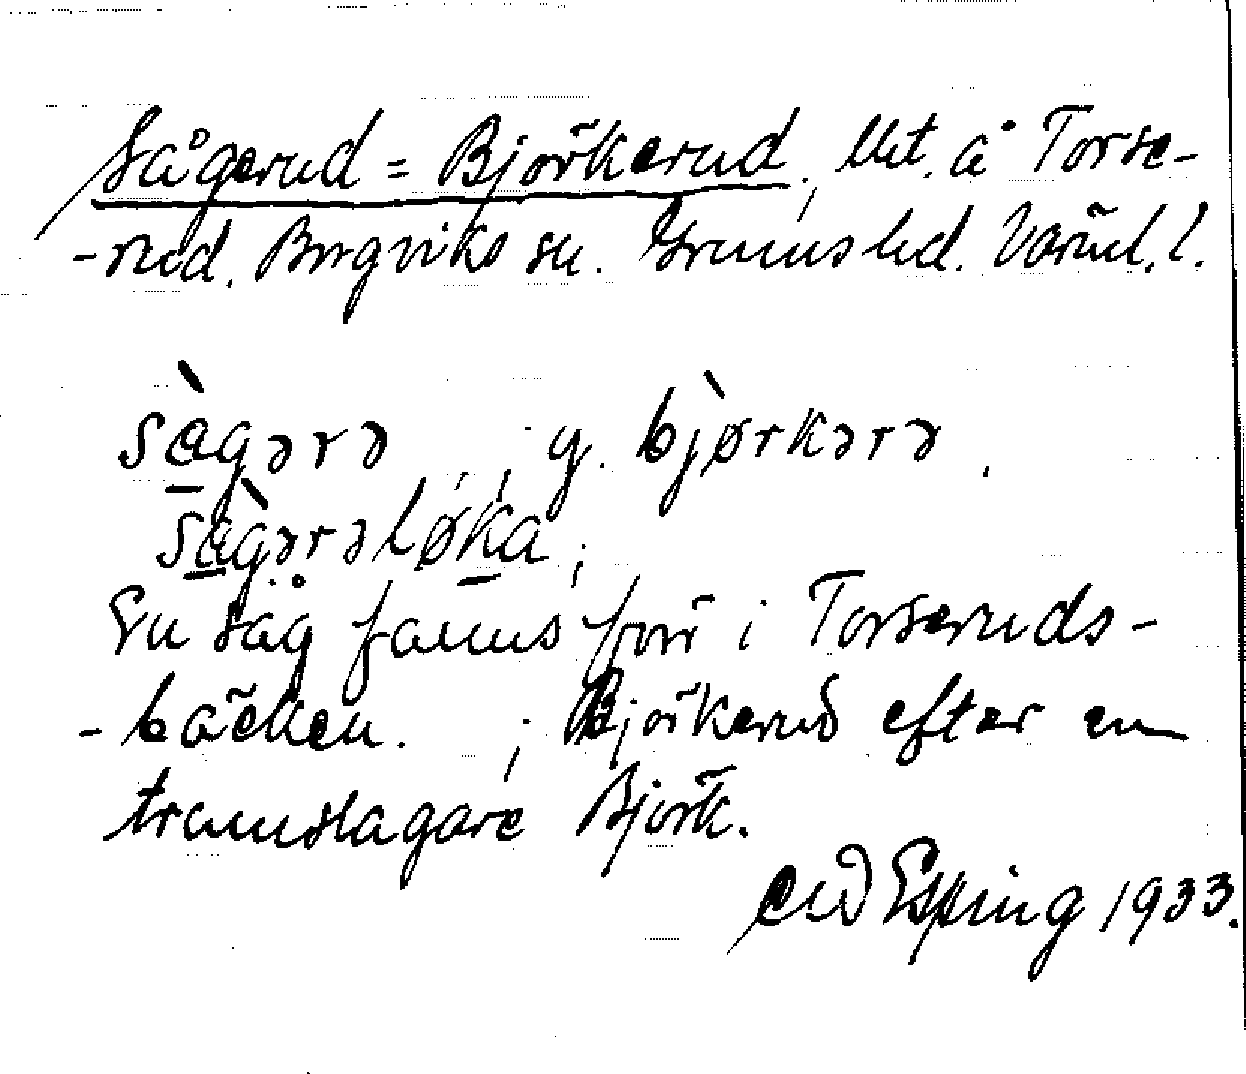 Sågerud = Björkerud, Utt. å Torse-
-rud. Borgviks sn. Grums hd. Värml. l.
sàgərə , , y. bjòrkərə .
sàgərəløka ;
En såg fanns förr i Torseruds-
-bäcken. ; Björkerud efter en
trumslagare Björk.
Espling 1933.